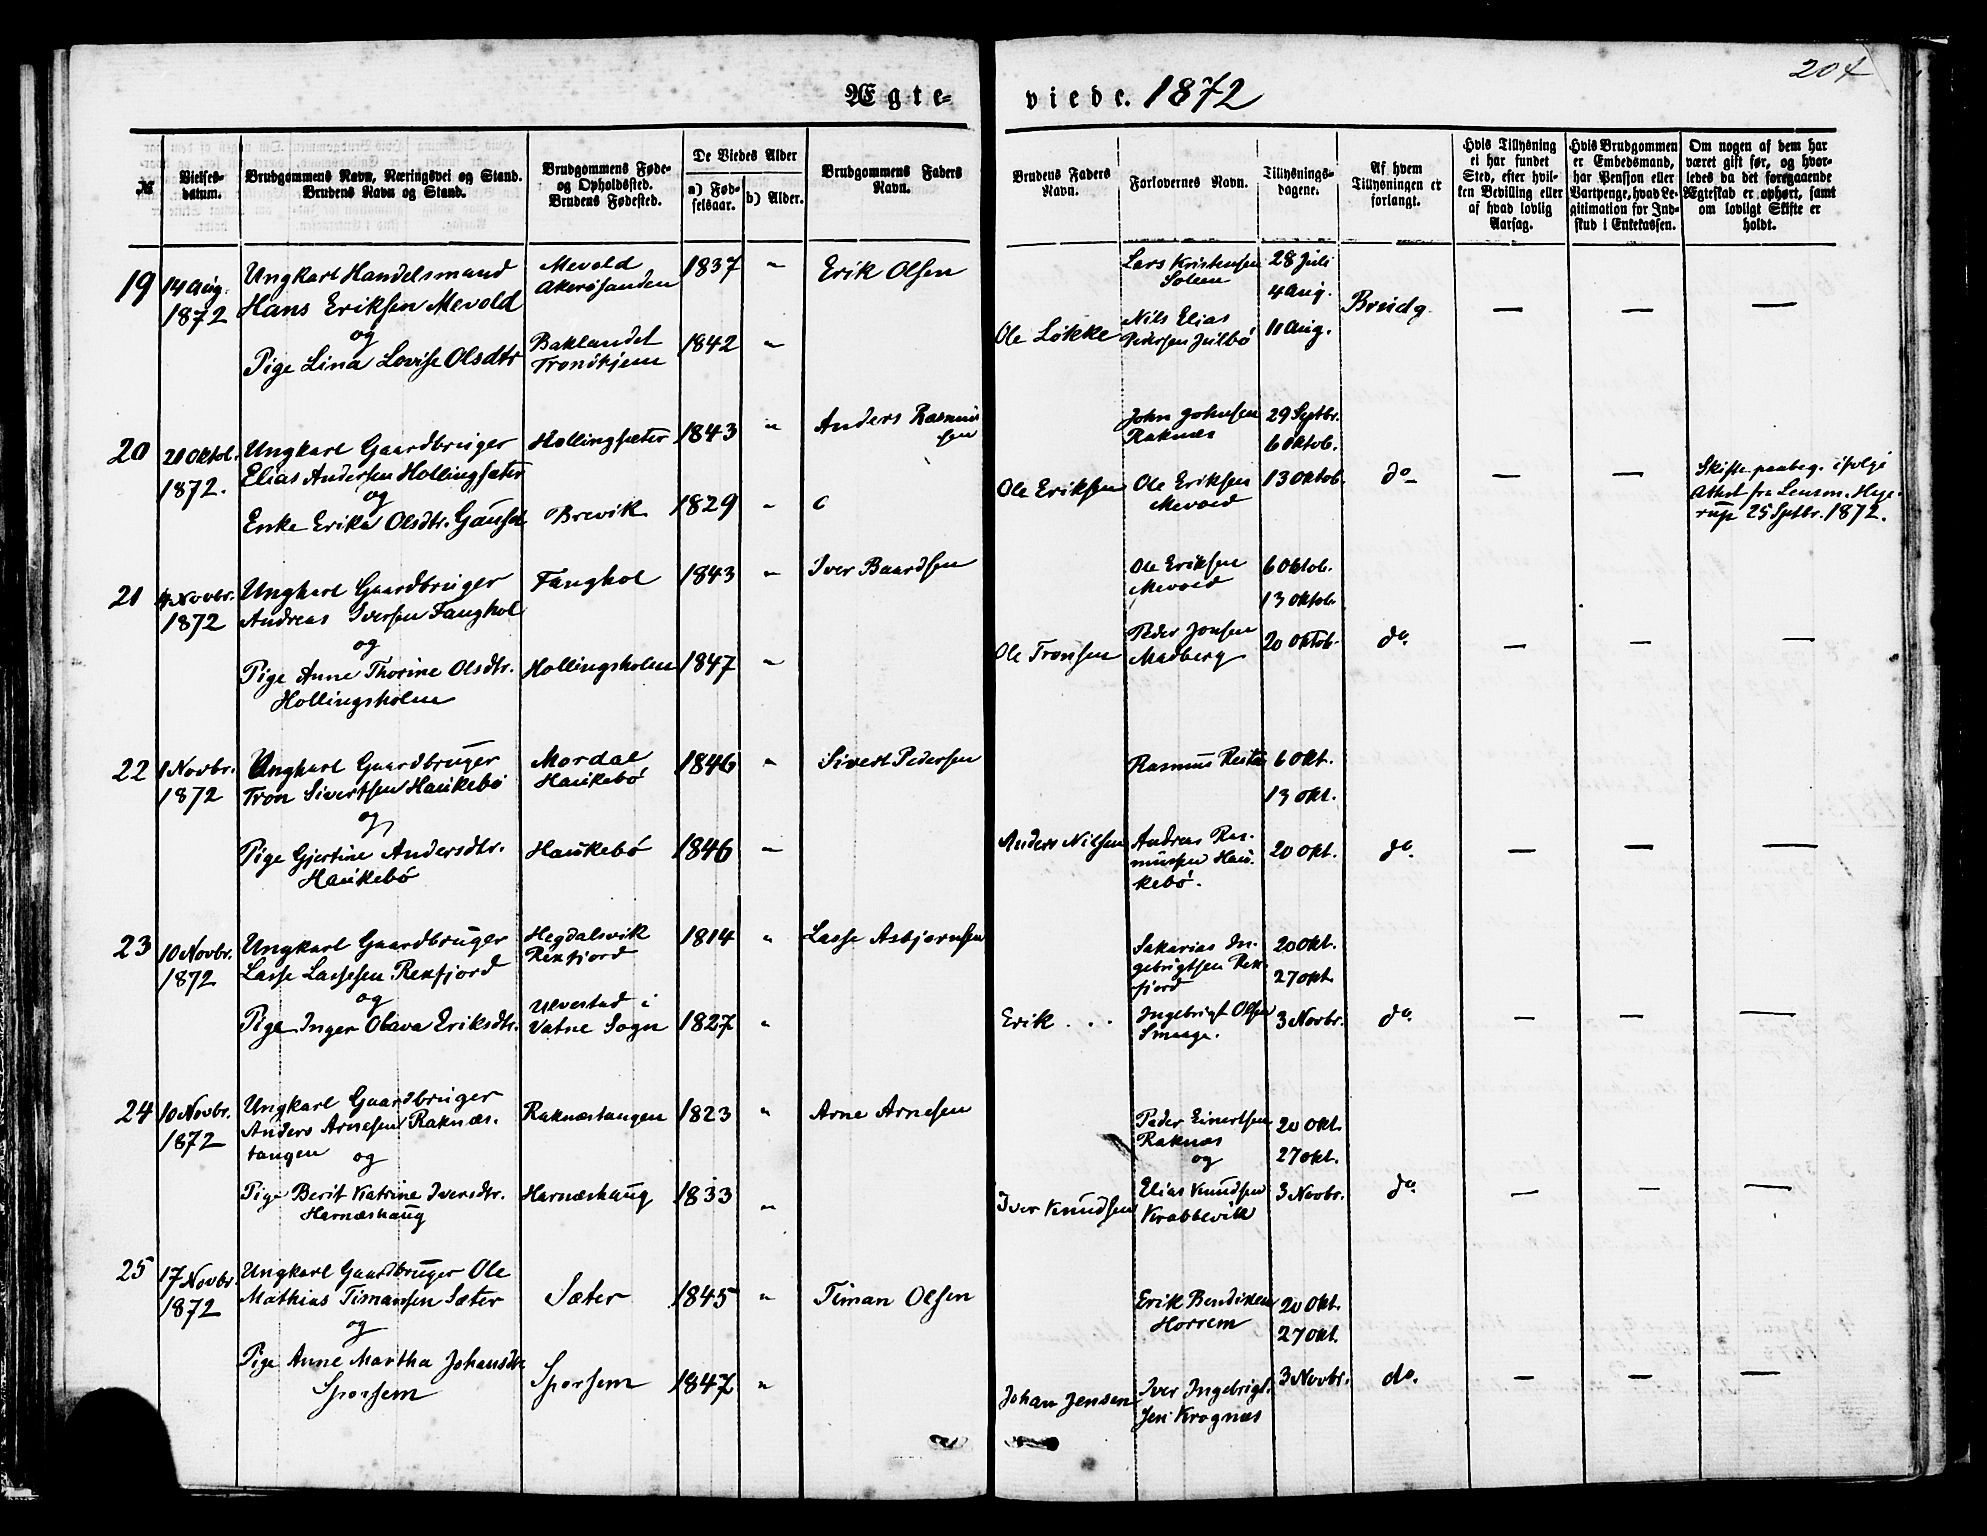 204
Ægte-
viede. 1872
№
Vielses-
datum.
Brudgommens Navn, Næringsvei og Stand.
Brudens Navn og Stand.
Brudgommens Føde-
og Opholdssted.
Brudens Fødested.
De Viedes Alder
a) Fød-
selsaar.
b) Alder.
Brudgommens Faders
Navn.
Brudens Faders
Navn.
Forlovernes Navn.
Tillysnings-
dagene.
Af hvem
Tillysningen er
forlangt.
Hvis Tillysning
ei har fundet
Sted, efter hvil-
ken Bevilling eller
af hvad lovlig
Aarsag.
Hvis Brudgommen
er Embedsmand,
har Pension eller
Vartpenge, hvad Le-
gitimation for Ind-
skud i Enkekassen.
Om nogen af dem har
været gift før, og hvor-
ledes da det foregaaende
Ægteskab er ophørt, samt
om lovligt Skifte er
holdt.
19
14 Aug.
1872
Ungkarl Handelsmand
Hans Eriksen Mevold
og
Pige Lina Lovise Olsdtr
Mevold
Akerösanden
Baklandet
Trondhjem
1837 "
1842 "
Erik Olsen
Ole Lökke
Lars Kristensen
Solem
Nils Elias
Pedersen Julbö
28 Juli
4 Aug.
11 Aug.
Brudg.
— — —
20
20 Oktob.
1872.
Ungkarl Gaardbruger
Elias Andersen Hollingsæter
og
Enke Erika Olsdtr. Gaüset
Hollingsæter
Brevik
1843 "
1829 "
Anders Rasmus
sen
Ole Eriksen
John Johnsen
Raknæs
Ole Eriksen
Mevold
29 Septbr.
6 Oktob.
13 Oktob.
do
— —
Skifte paabeg. ifølge
Attest fra Lensm. Heye-
rup 25 Sptbr. 1872.
21
4 Novbr.
1872
Ungkarl Gaardbruger
Andreas Iversen Fanghol
og
Pige Anne Thorine Olsdtr.
Hollingsholm
Fanghol
Hollingsholm
1843 "
1847 "
Iver Baardsen
Ole Tronsen
Ole Eriksen
Mevold
Peder Jonsen
Madberg
6 Oktob.
13 Oktob.
20 Oktob.
do.
— — —
22
1 Novbr.
1872
Ungkarl Gaardbruger
Tron Sivertsen Haükebö
og
Pige Gjertine Andersdtr.
Haükebö
Mordal
Haükebö
Haükebö
1846 "
1846 "
Sivert Pedersen
Anders Nilsen
Rasmus Resta
Andreas Ras-
müssen Haü-
kebö.
6 Okt.
13 Okt.
20 Okt.
do.
— — —
23
10 Novbr.
1872
Ungkarl Gaardbruger
Lasse Lassesen Rekfjord
og
Pige Inger Olava Eriksdtr.
Hegdalsvik
Rekfjord
Ulvestad i
Vatne Sogn
1814 "
1827 "
Lasse Asbjørnsen
Erik . . .
Sakarias In-
gebrigtsen Rek-
fjord
Ingebrigt Olsen
Smaage.
20 Okt.
27 Okt.
3 Novbr.
do.
— — —
24
10 Novbr.
1872
Ungkarl Gaardbruger
Anders Arnesen Raknæs-
tangen og
Pige Berit Katrine Iversdtr.
Harnæshaug
Raknæstangen
Harnæshaug
1823 "
1833 "
Arne Arnesen
Iver Knudsen
Peder Einertsen
Raknæs
og
Elias Knudsen
Krabbevik
20 Okt.
27 Okt.
3 Novbr.
do
— — —
25
17 Novbr.
1872
Ungkarl Gaardbruger Ole
Mathias Timansen Sæter
og
Pige Anne Martha Johansdtr
Sporsem
Sæter
Sporsem
1845 "
1847 "
Timan Olsen
Johan Jensen
Erik Bendiksen
Horrem
Iver Ingebrigt-
sen Krognæs
20 Okt.
27 Okt.
3 Novbr.
do.
— — —